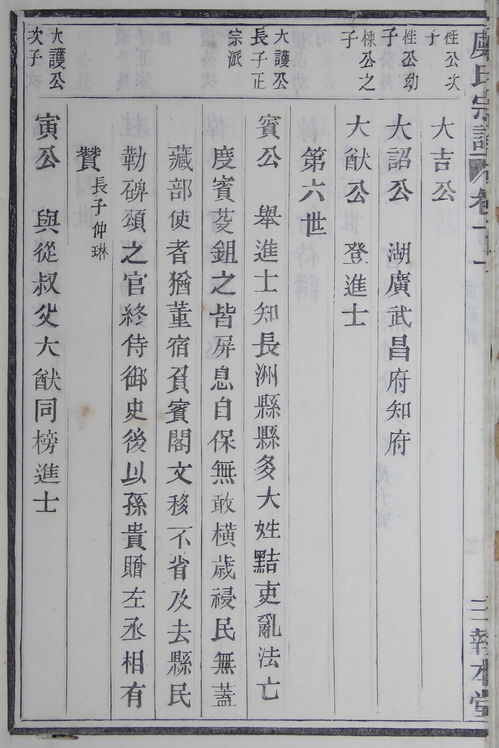 氏宗譜 卷十一 三 報本堂
桂公次
子
大吉公
桂公幼
子
大詔公 湖廣武昌府知府
棟公之
子
大猷公 登進士
第六世
大護公
長子正
宗派
賓公 舉進士知長洲縣縣多大姓黠吏亂法亡
度賓菱鉏之皆屏息自保無敢橫歲祲民無蓋
藏部使者猶董宿負賓閣文移不省及去縣民
勒碑頌之官終侍御史後以孫貴贈左丞相有
贊 長子仲琳
大護公
次子
寅公 與從叔父大猷同榜進士